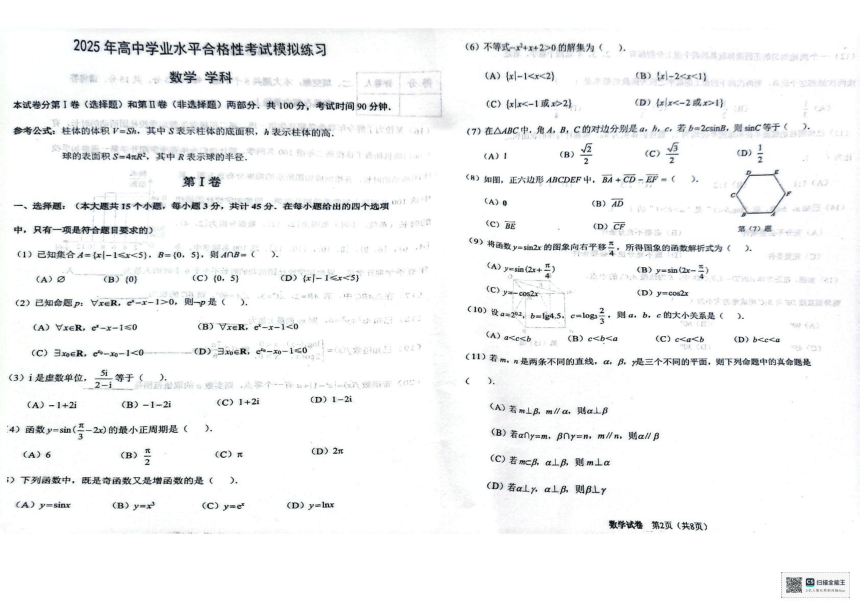 2025 年高中学业水平合格性考试模拟练习
数学 学科
本试卷分第Ⅰ卷（选择题）和第Ⅱ卷（非选择题）两部分，共 100 分，考试时间 90 分钟.
参考公式：柱体的体积 V=Sh，其中 S 表示柱体的底面积，h 表示柱体的高.
球的表面积 S=4πR²，其中 R 表示球的半径.
第Ⅰ卷
一、选择题：（本大题共 15 个小题，每小题 3 分，共计 45 分．在每小题给出的四个选项
中，只有一项是符合题目要求的）
（1）已知集合 A={x|−1≤x<5}，B={0，5}，则 A∩B=（ ）.
（A）∅ （B）{0} （C）{0，5} （D）{x|−1≤x<5}
（2）已知命题 p：∀x∈R，eˣ−x−1>0，则¬p 是（ ）.
（A）∀x∈R，eˣ−x−1≤0 （B）∀x∈R，eˣ−x−1<0
（C）∃x₀∈R，eˣ⁰−x₀−1<0 （D）∃x₀∈R，eˣ⁰−x₀−1≤0
（3）i 是虚数单位，5i/(2−i) 等于（ ）.
（A）−1+2i （B）−1−2i （C）1+2i （D）1−2i
4）函数 y=sin(π/3−2x)的最小正周期是（ ）.
（A）6 （B）π/2 （C）π （D）2π
）下列函数中，既是奇函数又是增函数的是（ ）.
（A）y=sinx （B）y=x³ （C）y=eˣ （D）y=lnx
（6）不等式−x²+x+2>0 的解集为（ ）.
（A）{x|−1<x<2} （B）{x|−2<x<1}
（C）{x|x<−1 或 x>2} （D）{x|x<−2 或 x>1}
（7）在△ABC 中，角 A，B，C 的对边分别是 a，b，c，若 b=2csinB，则 sinC 等于（ ）.
（A）1 （B）√2/2 （C）√3/2 （D）1/2
（8）如图，正六边形 ABCDEF 中，BA+CD−EF=（ ）.
（A）0 （B）AD
（C）BE （D）CF
D E C F
第（7）题
（9）将函数 y=sin2x 的图象向右平移 π/4，所得图象的函数解析式为（ ）.
（A）y=sin(2x+π/4) （B）y=sin(2x−π/4)
（C）y=−cos2x （D）y=cos2x
（10）设 a=2⁰·²，b=lg4.5，c=log₃2/3，则 a，b，c 的大小关系是（ ）.
（A）a<c<b （B）c<b<a （C）c<a<b （D）b<c<a
（11）若 m，n 是两条不同的直线，α，β，γ是三个不同的平面，则下列命题中的真命题是
（ ）.
（A）若 m⊥β，m∥α，则α⊥β
（B）若α∩γ=m，β∩γ=n，m∥n，则α∥β
（C）若 m⊂β，α⊥β，则 m⊥α
（D）若α⊥γ，α⊥β，则β⊥γ
数学试卷 第2页（共8页）
扫描全能王